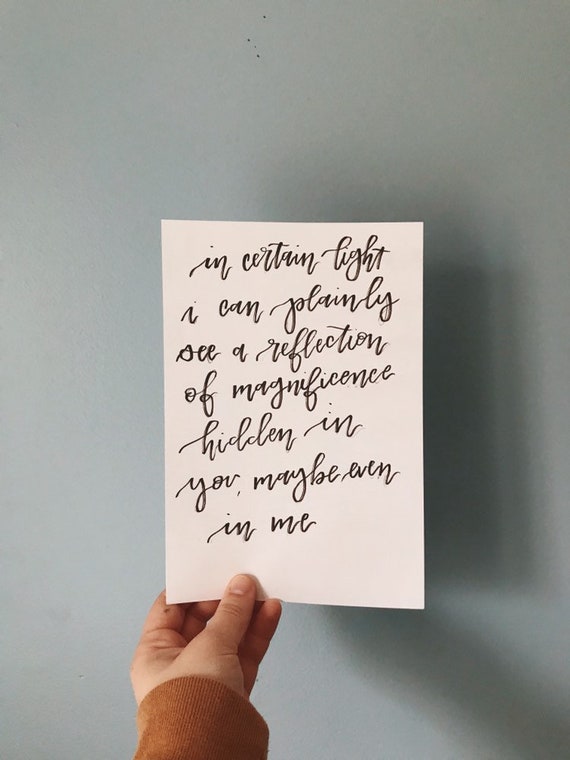 in certain light
i can plainly
see a reflection
of magnificence
hidden in
you, maybe even
in me